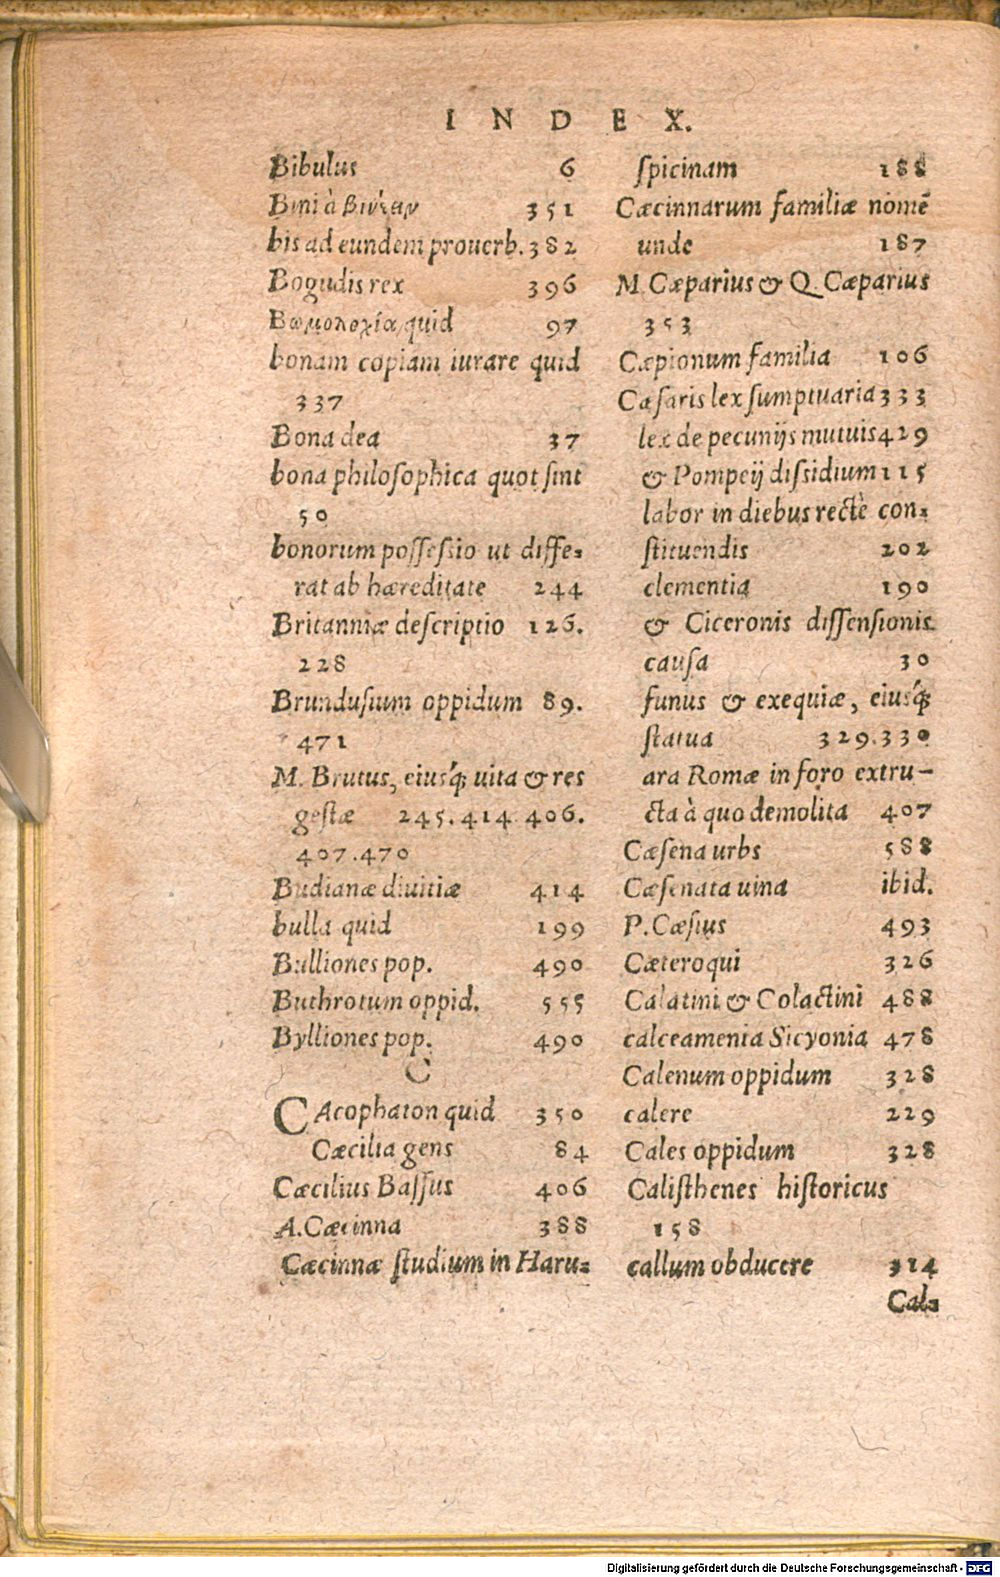 INDEX.
Bibulus 6
Bini à βινεῖν 351
bis ad eundem prouerb. 382
Bogudis rex 396
Βωμολοχία, quid 97
bonam copiam iurare quid
337
Bona dea 37
bona philoſophica quot ſint
50
bonorum poſſeſsio ut diffe=
rat ab hæreditate 244
Britanniæ deſcriptio 126.
228
Brunduſium oppidum 89.
471
M. Brutus, eiusq́; uita & res
geſtæ 245. 414 406.
407. 470
Budianæ diuitiæ 414
bulla quid 199
Bulliones pop. 490
Buthrotum oppid. 555
Bylliones pop. 490
C
CAcophaton quid 350
Cæcilia gens 84
Cæcilius Baſſus 406
A. Cæcinna 388
Cæcinnæ ſtudium in Haru=
ſpicinam 188
Cæcinnarum familiæ nomẽ
unde 187
M. Cæparius & Q. Cæparius
353
Cæpionum familia 106
Cæſaris lex ſumptuaria 333
lex de pecunijs mutuis 429
& Pompeij diſsidium 115
labor in diebus rectè con=
ſtituendis 202
clementia 190
& Ciceronis diſſenſionis
cauſa 30
funus & exequiæ, eiusq́;
ſtatua 329. 330
ara Romæ in foro extru-
cta à quo demolita 407
Cæſena urbs 588
Cæſenata uina ibid.
P. Cæſius 493
Cæteroqui 326
Calatini & Colactini 488
calceamenta Sicyonia 478
Calenum oppidum 328
calere 229
Cales oppidum 328
Caliſthenes hiſtoricus
158
callum obducere 314
Cal=
Digitalisierung gefördert durch die Deutsche Forschungsgemeinschaft - DFG